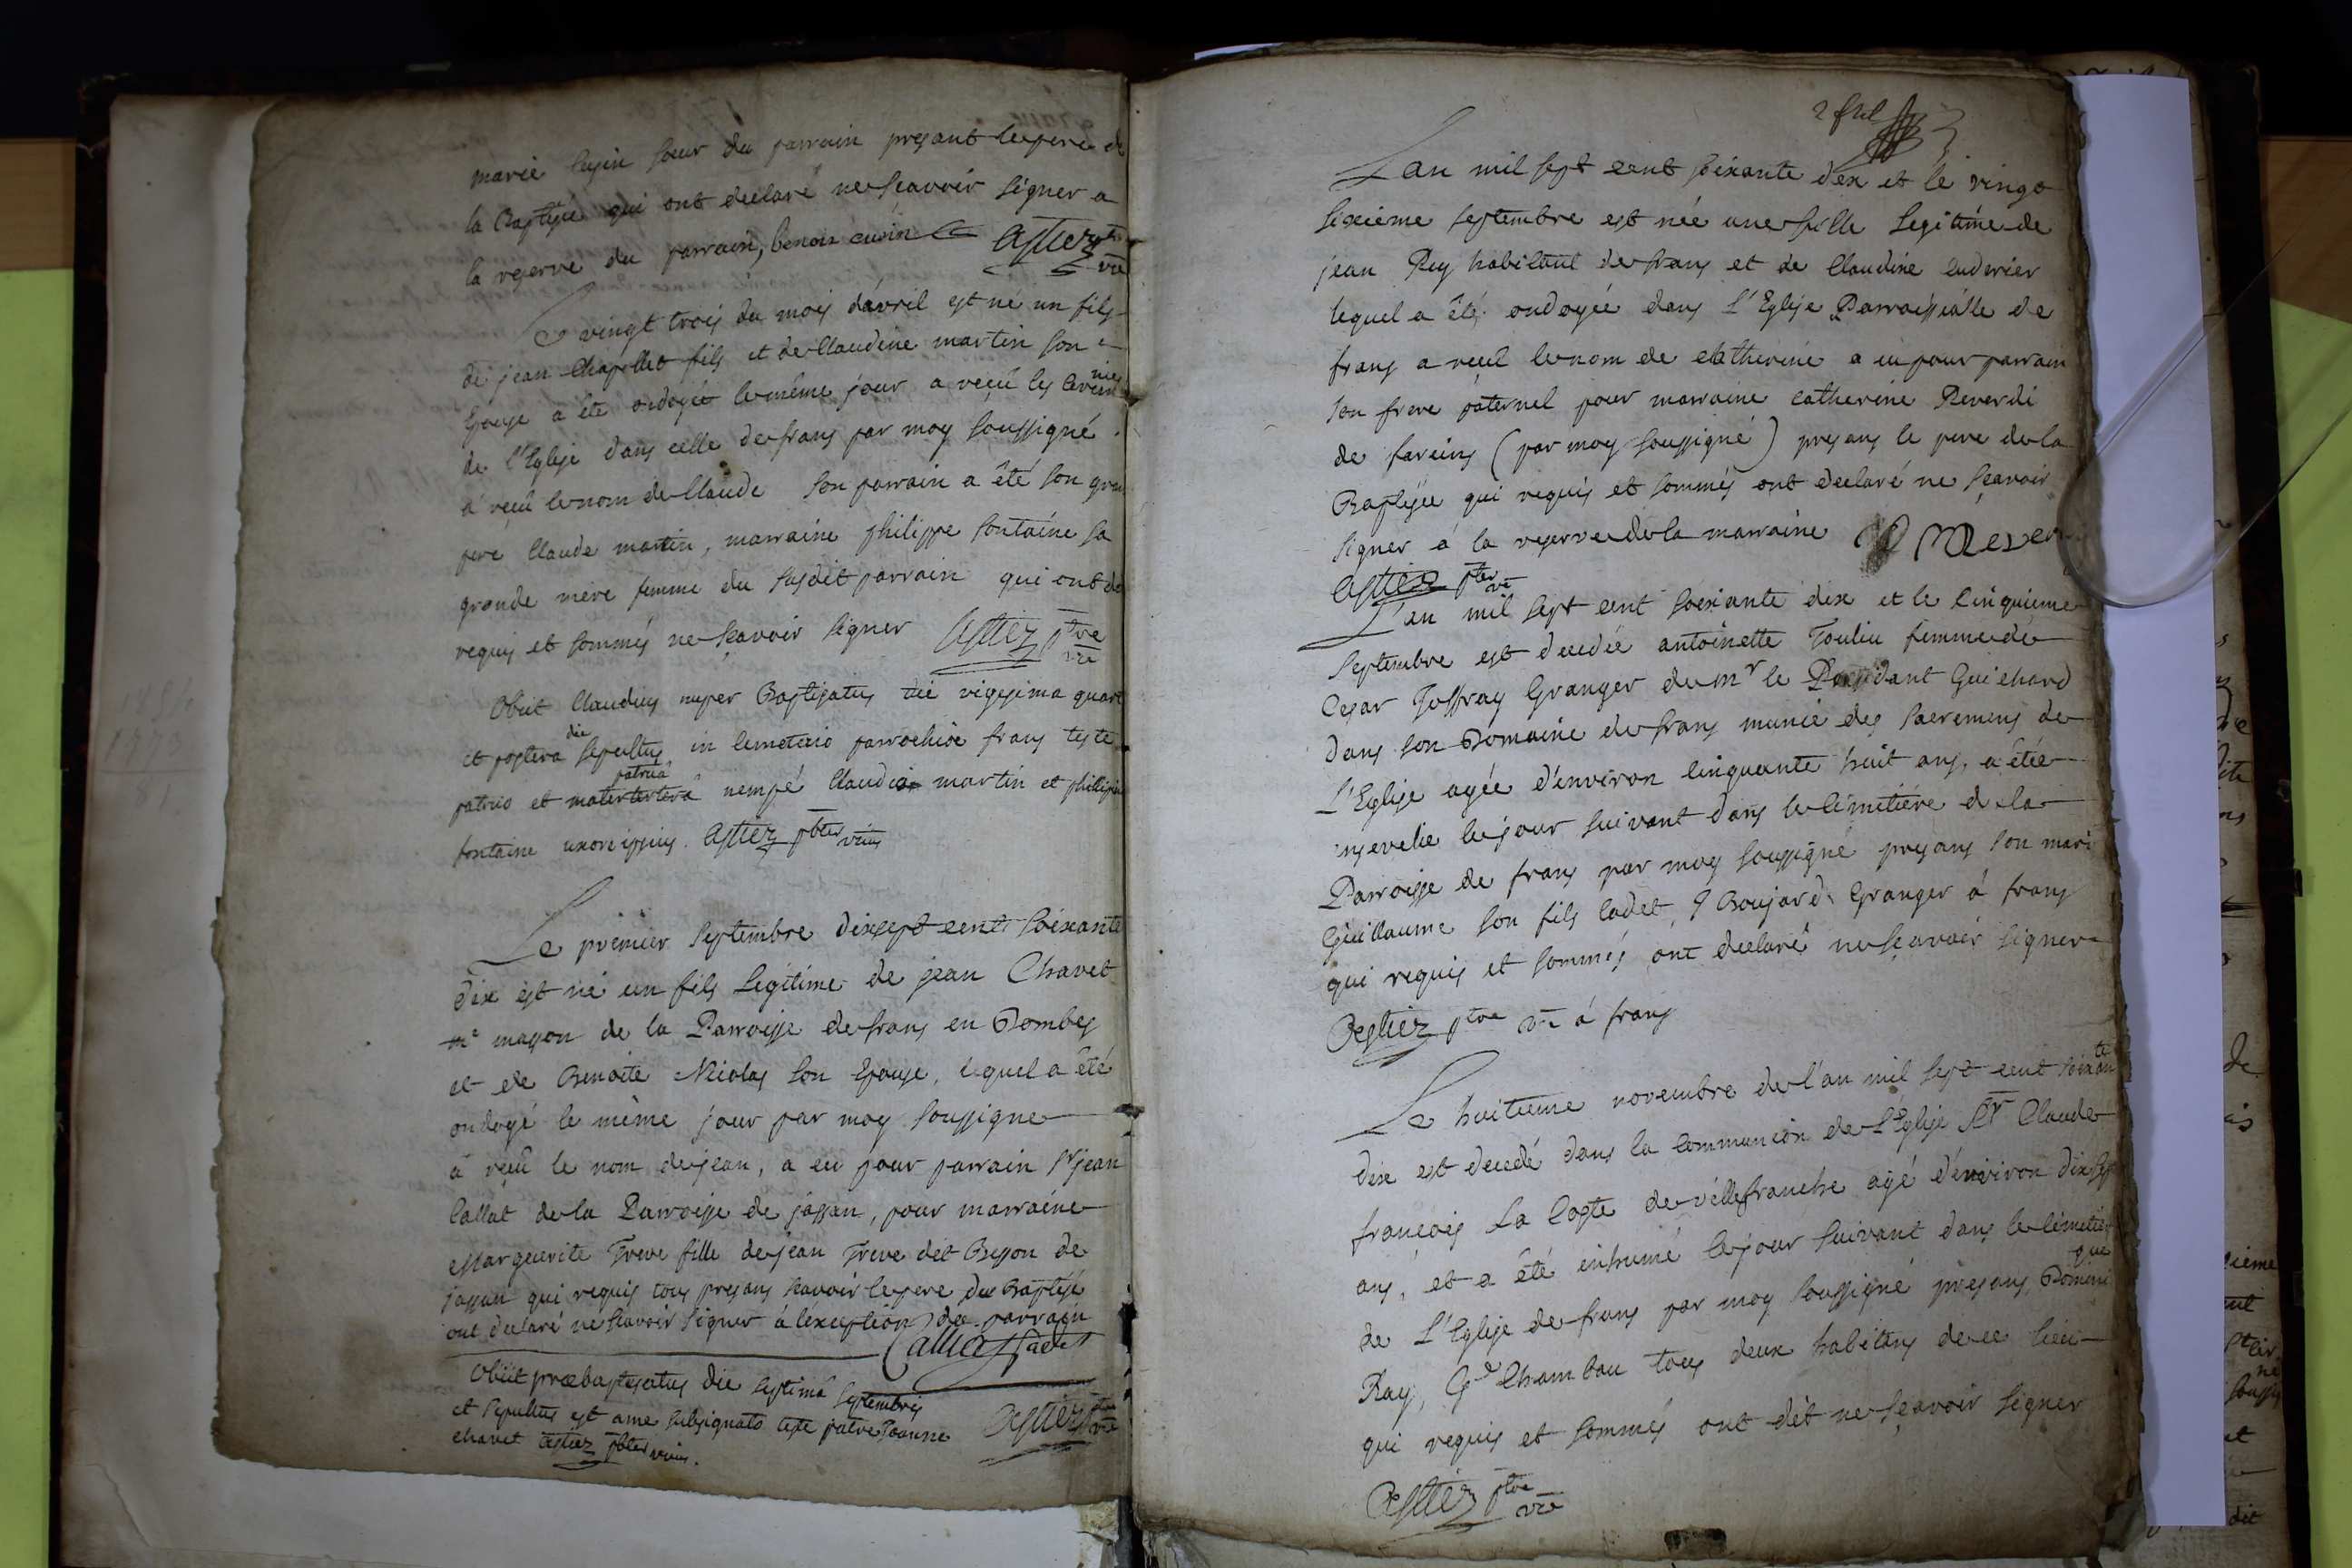 marie cusin sœur du parrain presant le pere de
la Baptisée qui ont declaré ne scavoir signer a
la reserve du parrain, benoit cusin astiez ptre
vic
Le vingt trois du mois d'avril est né un fils
de jean Chapollet fils et de Claudine martin son
Epouse a été ondoyé le même jour a reçu les ceremonies
de l'Eglise dans celle de frans par moy soussigné
a reçu le nom de Claude son parrain a été son grand
pere Claude martin, marraine philippe fontaine sa
grande mere femme du susdit parrain qui ont de
requis et sommés ne scavoir signer astiez ptre
vic
Obiit Claudius nuper Baptisatus die vigesima quart
et postera die sepultus in cemeterio parrochiæ frans teste
patrio et patriâ nempé Claudio martin et philippa
fontaine uxore ipsius. astiez pbter vius
Le premier septembre dixsept cent soixante
dix est né un fils Legitime de jean Chavet
me masson de la Parroisse de frans en Dombes
et de Benoite Nicolas son Epouse, lequel a été
ondoyé le même jour par moy soussigne
a reçu le nom de jean, a eu pour parrain sr jean
Callat de la Parroisse de jassan, pour marraine
Marguerite Treve fille de jean Treve dit Besson de
jassan qui requis tous presans scavoir le pere du Baptisé
ont declaré ne scavoir signer à l'exception du parrain
Obiit præbaptisatus die septimâ septembris
et sepultus est a me subsignato teste patre Joanne
chavet astiez pbter vius.
astiez ptre
vic
2 ful
L'an mil sept cent soixante dix et le vingt
sixieme septembre est née une fille Legitime de
jean Rey habitant de frans et de Claudine
lequel a été ondoyée dans l'Eglise Parroissialle de
frans a reçu le nom de Catherine a eu pour parrain
son frere paternel pour marraine catherine Reverdi
de fareins (par moy soussigné) presans le pere de la
Baptisée qui requis et sommés ont declaré ne scavoir
signer à la reserve de la marraine
astiez pter
vic
L'an mil sept cent soixante dix et le cinquieme
septembre est decedée antoinette Toulieu femme de
Cesar Joffray Granger de mr le Presidant Guichard
dans son Domaine de frans munie des sacremens de
L'Eglise agée d'environ cinquante huit ans, a étée
insevelie le jour suivant dans le cimetiere de la
Parroisse de frans par moy soussigné presans son mari
Guillaume son fils cadet, Boujard Granger à frans
qui requis et sommés ont declaré ne scavoir signer
Astiez ptre vic à frans
Le huitieme novembre de l'an mil sept cent soixante
dix est decedé dans la communion de l'Eglise Sr Claude
francois La Coste de villefranche agé d'environ dix sept
ans, et a été inhumé le jour suivant dans le cimetiere
de L'Eglise de frans par moy soussigné presans Dominique
Ray, Gd Chambau tous deux habitans de ce lieu
qui requis et sommés ont dit ne scavoir signer
Astiez ptre
vic